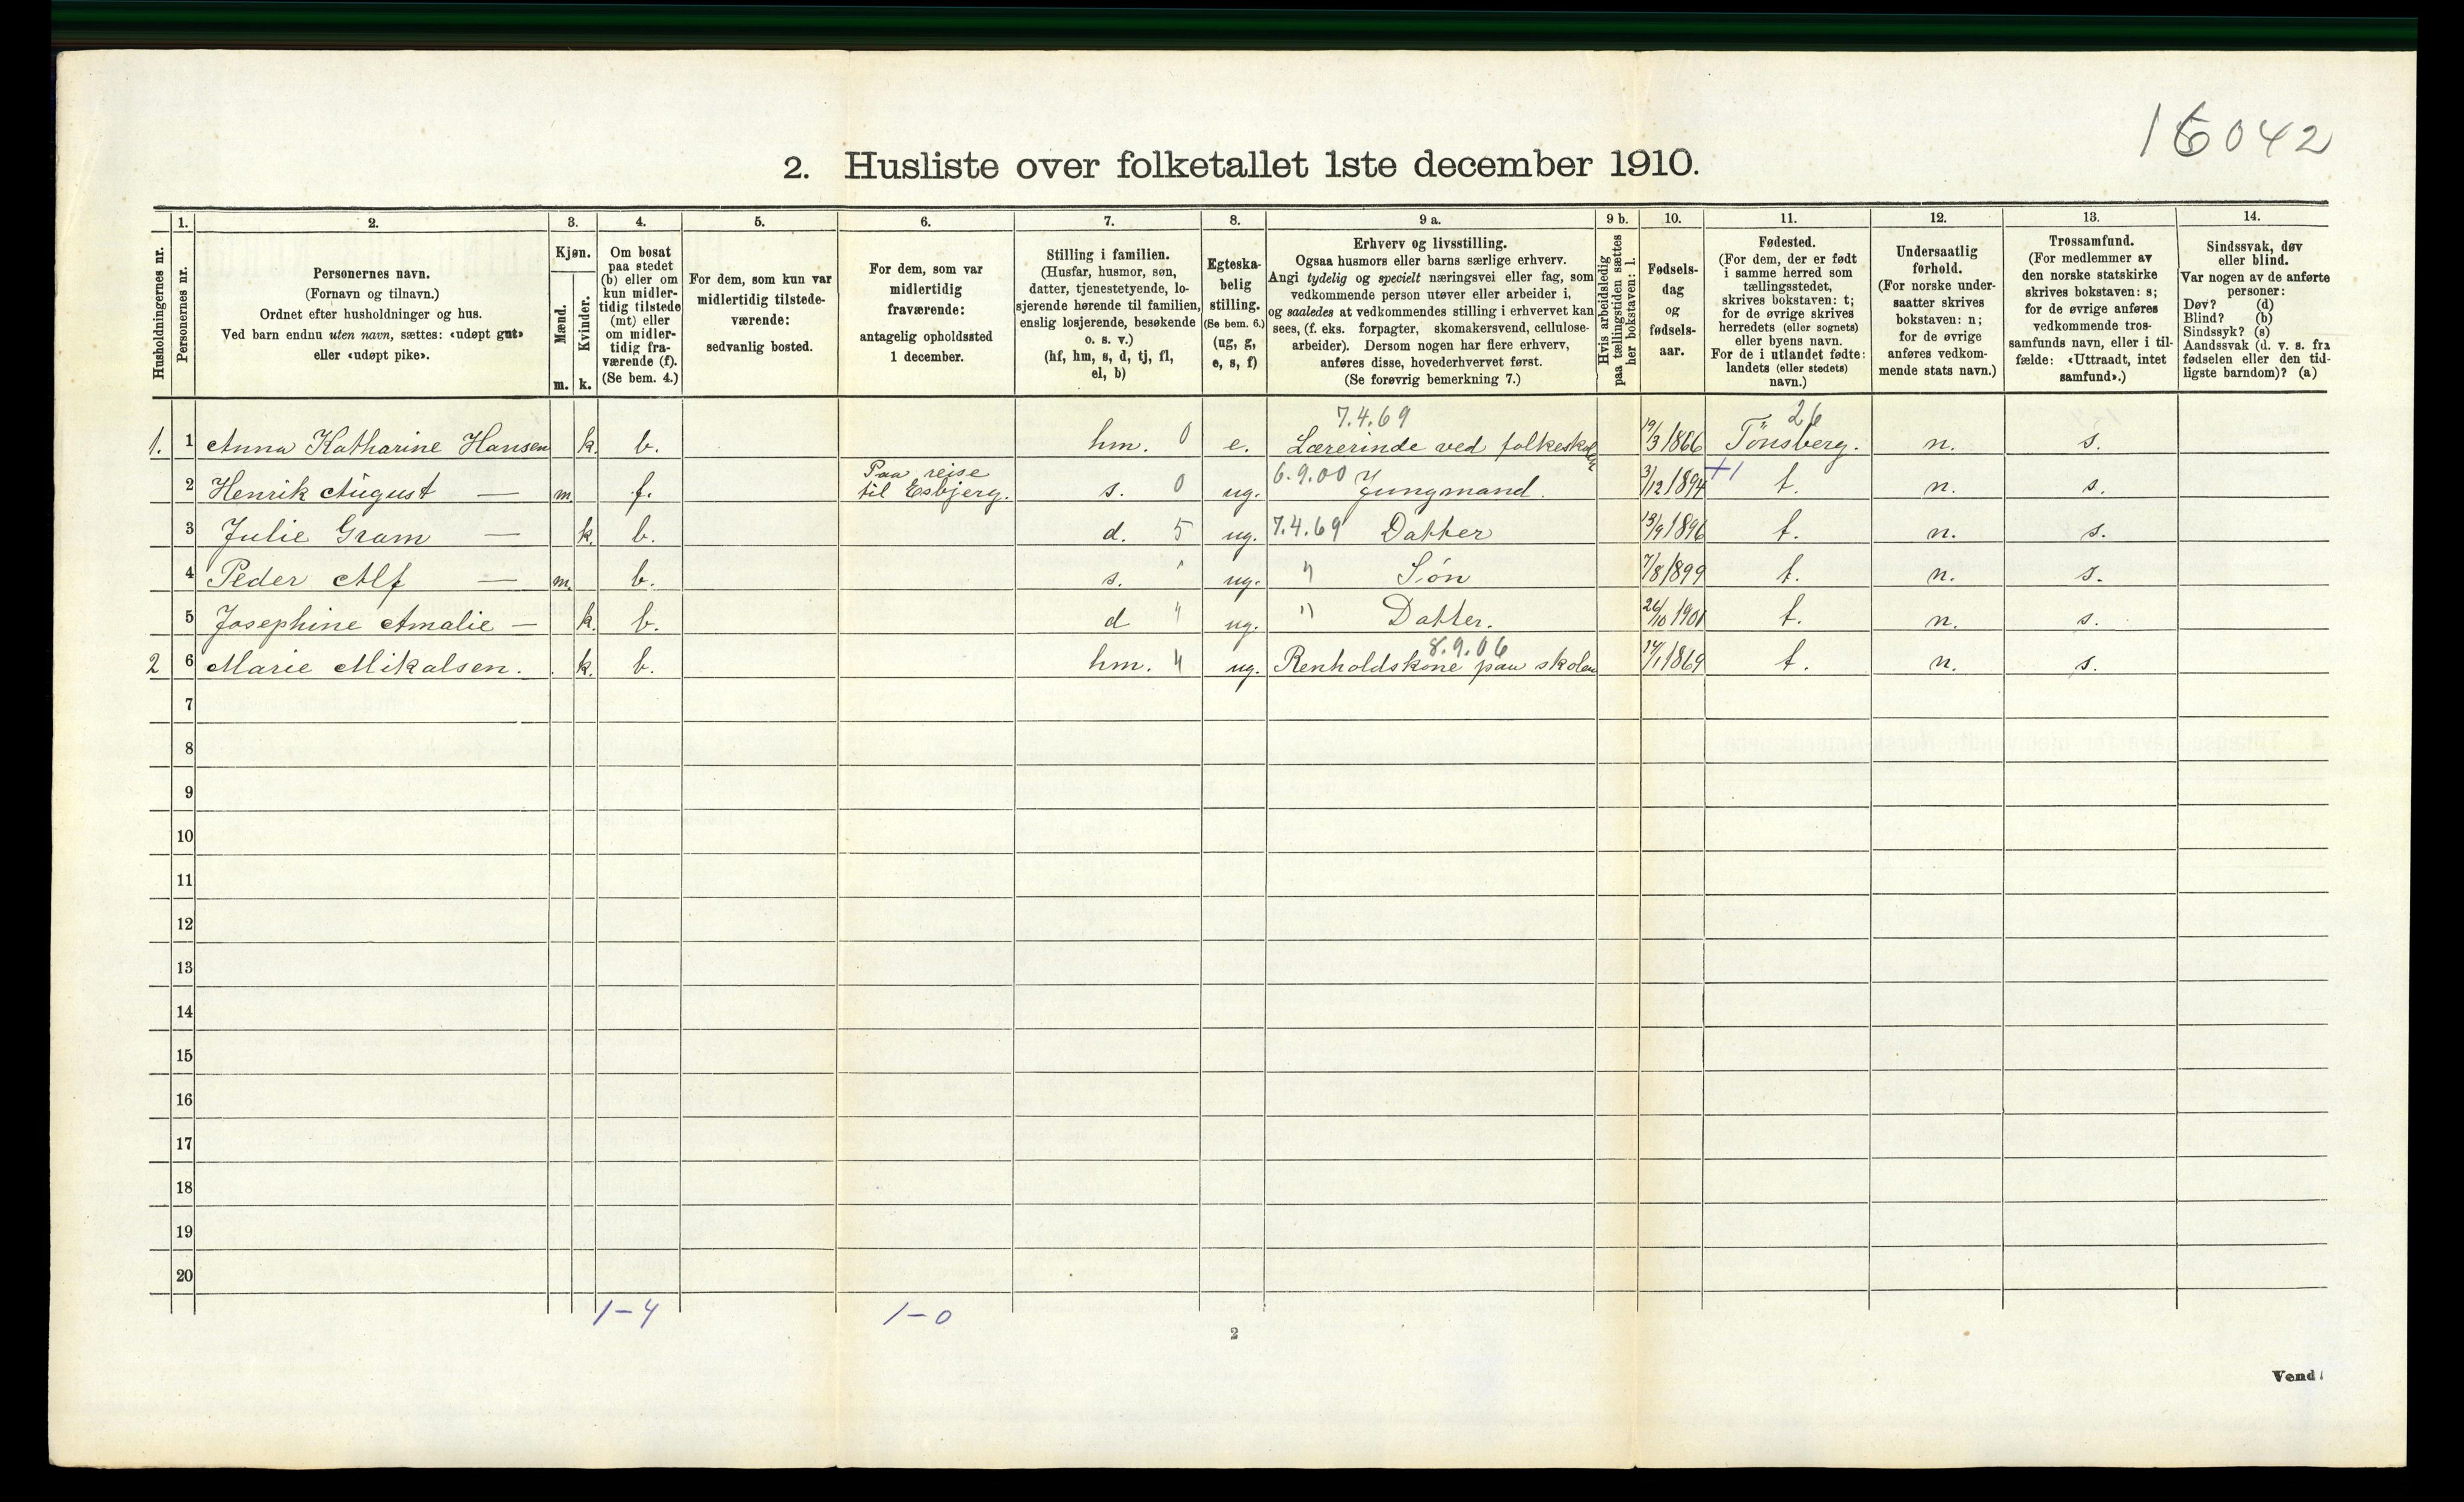 16042
2. Husliste over folketallet 1ste december 1910.
Husholdningernes nr.
1.
Personernes nr.
2.
Personernes navn.
(Fornavn og tilnavn.)
Ordnet efter husholdninger og hus.
Ved barn endnu uten navn, sættes: «udøpt gut»
eller «udøpt pike».
3.
Kjøn.
Mænd.
Kvinder.
m. k.
4.
Om bosat
paa stedet
(b) eller om
kun midler-
tidig tilstede
(mt) eller
om midler-
tidig fra-
værende (f).
(Se bem. 4.)
5.
For dem, som kun var
midlertidig tilstede-
værende:
sedvanlig bosted.
6.
For dem, som var
midlertidig
fraværende:
antagelig opholdssted
1 december.
7.
Stilling i familien.
(Husfar, husmor, søn,
datter, tjenestetyende, lo-
sjerende hørende til familien,
enslig losjerende, besøkende
o. s. v.)
(hf, hm, s, d, tj, fl,
el, b)
8.
Egteska-
belig
stilling.
(Se bem. 6.)
(ug, g,
e, s, f)
9 a.
Erhverv og livsstilling.
Ogsaa husmors eller barns særlige erhverv.
Angi tydelig og specielt næringsvei eller fag, som
vedkommende person utøver eller arbeider i,
og saaledes at vedkommendes stilling i erhvervet kan
sees, (f. eks. forpagter, skomakersvend, cellulose-
arbeider). Dersom nogen har flere erhverv,
anføres disse, hovederhvervet først.
(Se forøvrig bemerkning 7.)
9 b.
Hvis arbeidsledig
paa tællingstiden sættes
her bokstaven: l.
10.
Fødsels-
dag
og
fødsels-
aar.
11.
Fødested.
(For dem, der er født
i samme herred som
tællingsstedet,
skrives bokstaven: t;
for de øvrige skrives
herredets (eller sognets)
eller byens navn.
For de i utlandet fødte:
landets (eller stedets)
navn.)
12.
Undersaatlig
forhold.
(For norske under-
saatter skrives
bokstaven: n;
for de øvrige
anføres vedkom-
mende stats navn.)
13.
Trossamfund.
(For medlemmer av
den norske statskirke
skrives bokstaven: s;
for de øvrige anføres
vedkommende tros-
samfunds navn, eller i til-
fælde: «Uttraadt, intet
samfund».)
14.
Sindssvak, døv
eller blind.
Var nogen av de anførte
personer:
Døv? (d)
Blind? (b)
Sindssyk? (s)
Aandssvak (d. v. s. fra
fødselen eller den tid-
ligste barndom)? (a)
7.4.69 26
1. 1 Anna Katharine Hansen k. b. hm. 0 e. Lærerinde ved folkeskolen 19/3 1866 Tönsberg. n. s.
Paa reise
2 Henrik August — m. f. til Esbjerg. s. 0 ug. 6.9.00 Jungmand. 31/12 1894 +1 t. n. s.
3 Julie Gram — k. b. d. 5 ug. 7.4.69 Datter 13/9 1896 t. n. s.
4 Peder Alf — m. b. s. " ug. " Søn 7/8 1899 t. n. s.
5 Josephine Amalie — k. b. d " ug. " Datter. 26/10 1901 t. n. s.
8.9.06
2 6 Marie Mikalsen. k. b. hm. 4 ug. Renholdskone paa skolen 14/1 1869 t. n. s.
7
8
9
10
11
12
13
14
15
16
17
18
19
20
1-4 1-0
2
Vend!